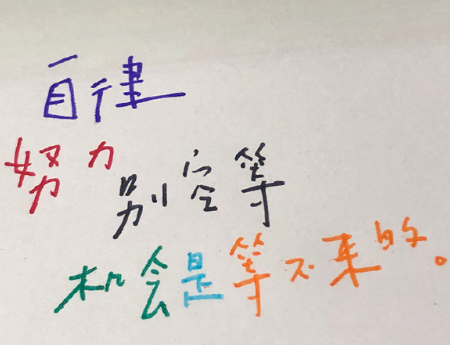 自律
努力
别空等
机会是等不来的。